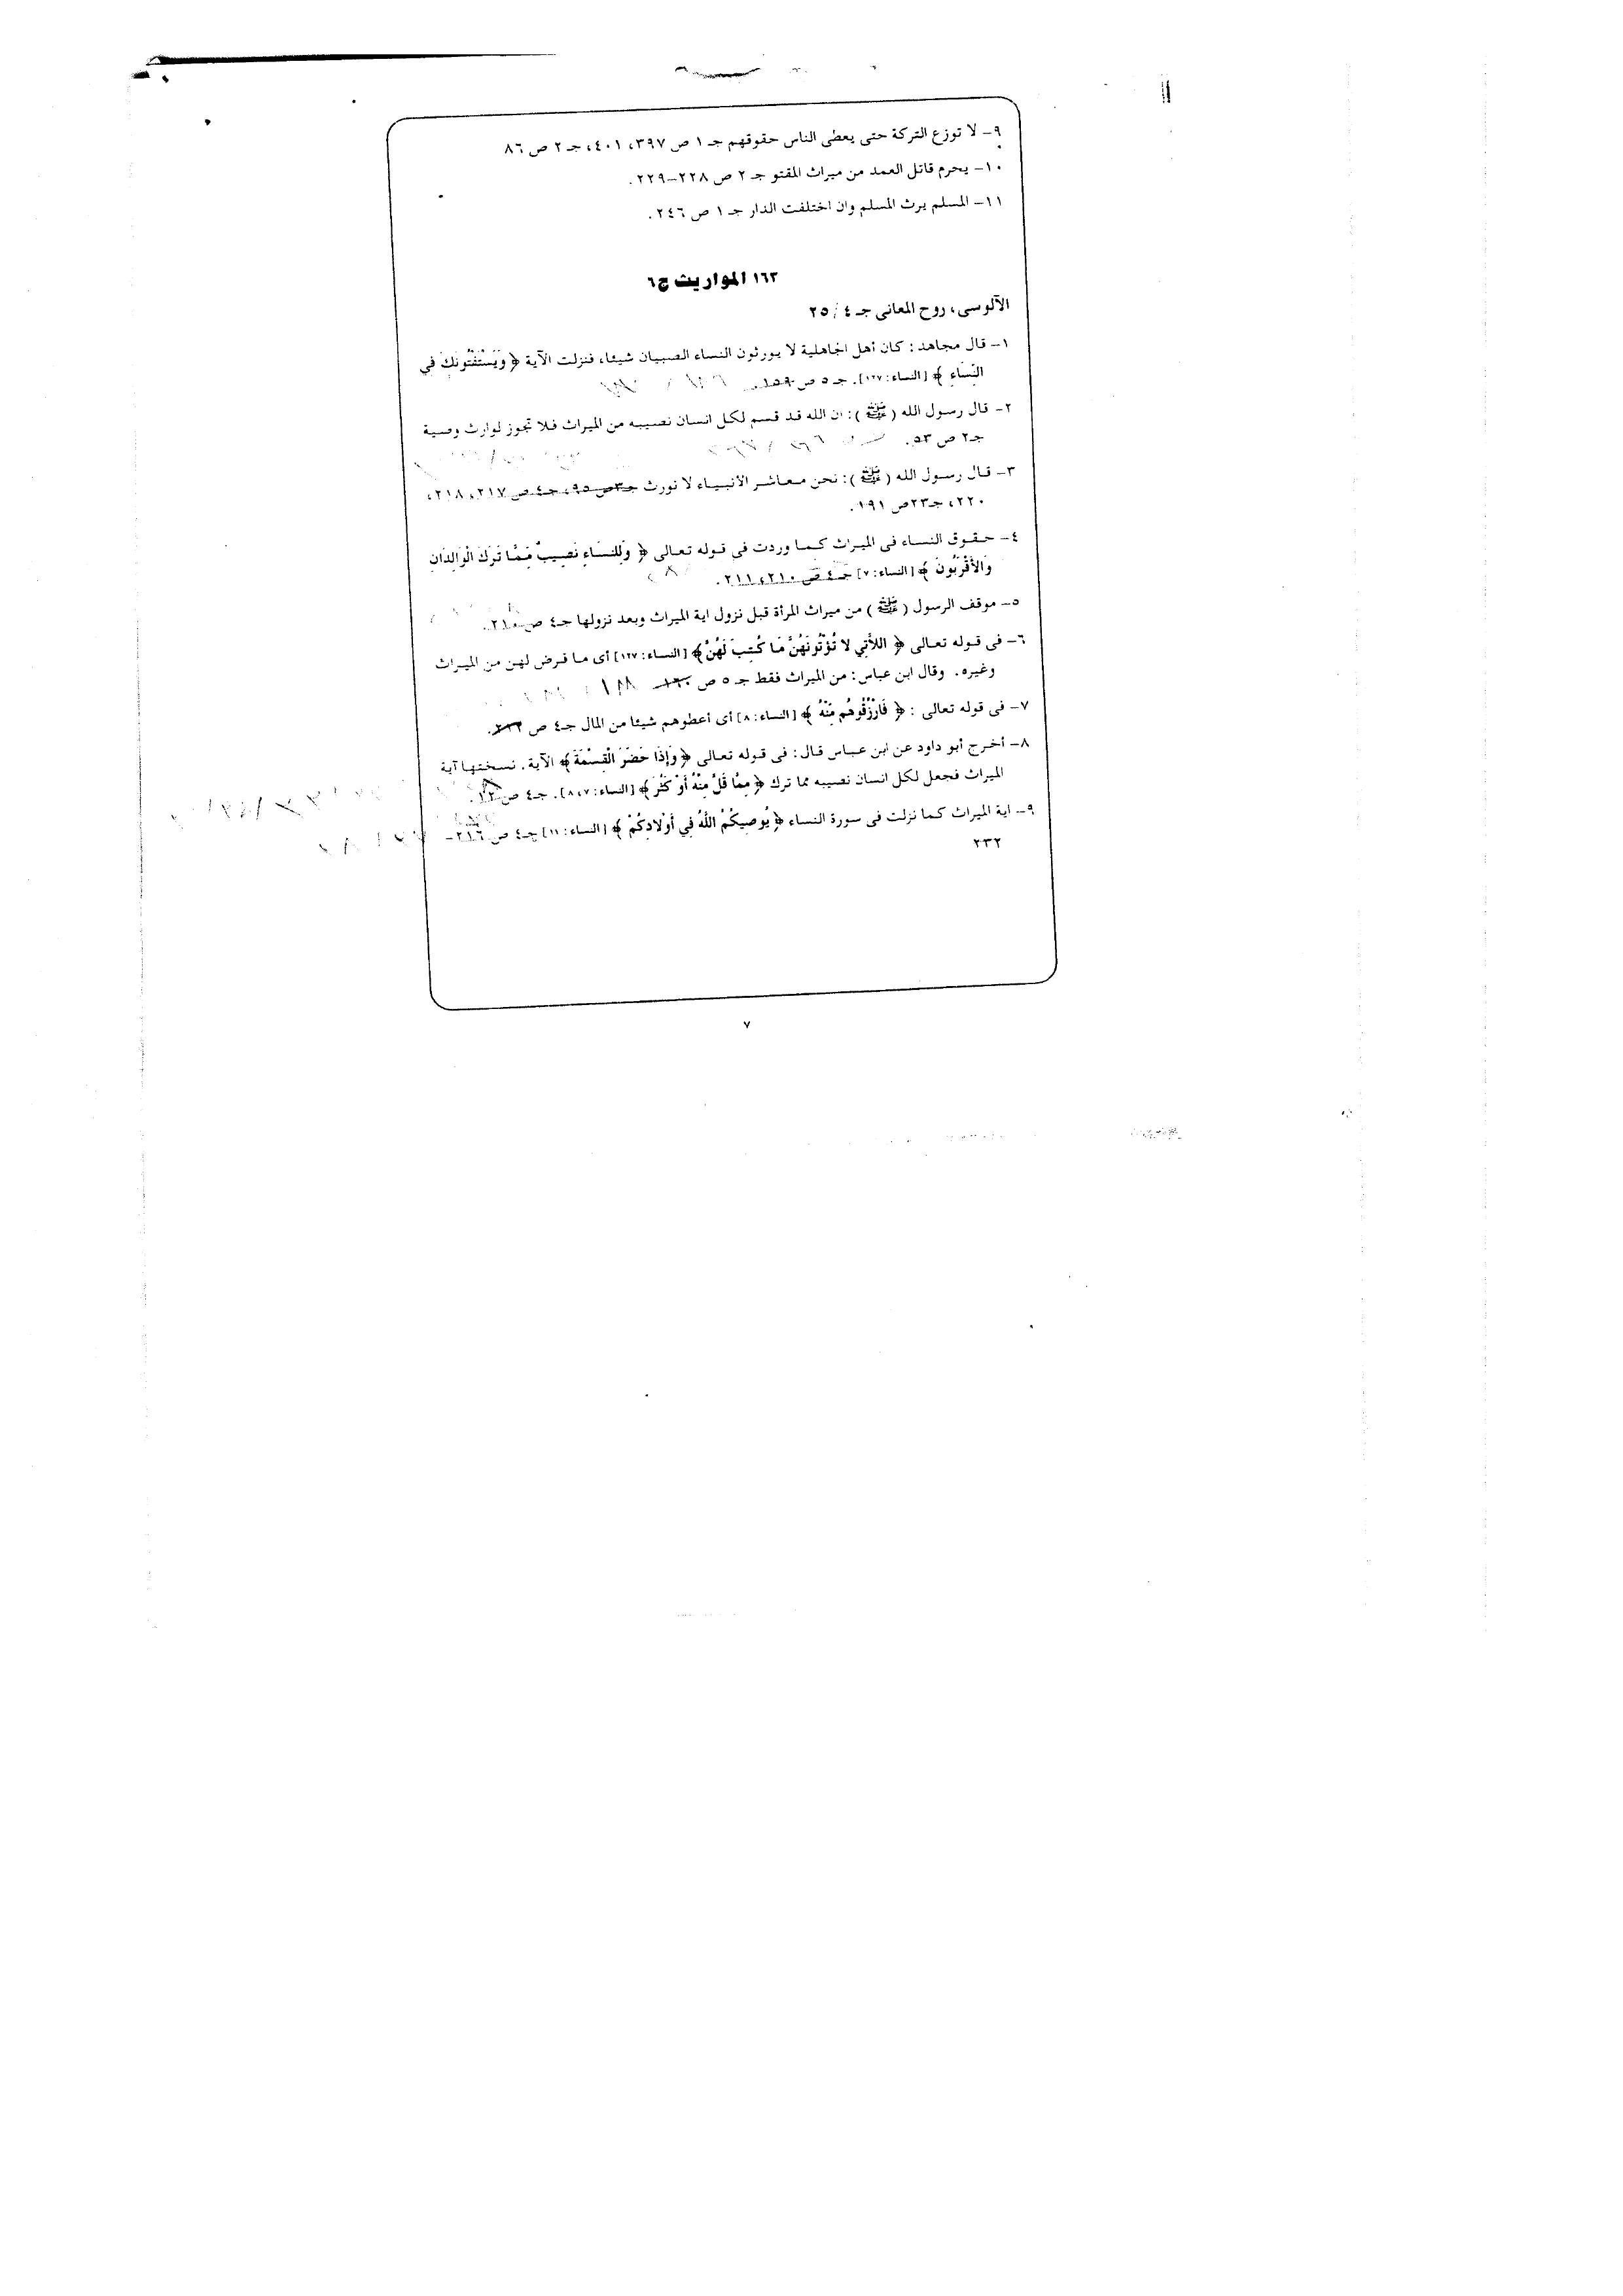 ٩- لا توزع التركة حتى يعطى الناس حقوقهم جـ ١ ص ٣٩٧، ٤٠١، جـ ٢ ص ٨٦
١٠- يحرم قاتل العمد من ميراث المقتو جـ ٢ ص ٢٢٨-٢٢٩.
١١- المسلم يرث المسلم وان اختلفت الدار جـ ١ ص ٢٤٦.
١٦٣ المواريث ج٦
الآلوسى، روح المعانى جـ ٤ / ٢٥
١- قال مجاهد: كان أهل الجاهلية لا يورثون النساء الصبيان شيئا، فنزلت الآية ﴿ وَيَسْتَفْتُونَكَ فِي
النِّسَاءِ ﴾ [النساء: ١٢٧]. جـ ٥ ص ١٥٩.
٢- قال رسول الله (ﷺ): ان الله قد قسم لكل انسان نصيبه من الميراث فلا تجوز لوارث وصية
جـ٢ ص ٥٣.
٣- قال رسول الله (ﷺ): نحن معاشر الأنبياء لا نورث جـ٣ ص ٩٥، جـ٤ ص ٢١٧، ٢١٨،
٢٢٠، جـ٢٣ ص ١٩١.
٤- حقوق النساء فى الميراث كما وردت فى قوله تعالى ﴿ وَلِلنِّسَاءِ نَصِيبٌ مِّمَّا تَرَكَ الْوَالِدَانِ
وَالأَقْرَبُونَ ﴾ [النساء: ٧] جـ٤ ص ٢١٠، ٢١١.
٥- موقف الرسول (ﷺ) من ميراث المرأة قبل نزول اية الميراث وبعد نزولها جـ٤ ص ٢١٠.
٦- فى قوله تعالى ﴿ اللاَّتِي لا تُؤْتُونَهُنَّ مَا كُتِبَ لَهُنَّ ﴾ [النساء: ١٢٧] أى ما فرض لهن من الميراث
وغيره. وقال ابن عباس: من الميراث فقط جـ ٥ ص ١٦٠
٧- فى قوله تعالى : ﴿ فَارْزُقُوهُم مِّنْهُ ﴾ [النساء: ٨] أى أعطوهم شيئا من المال جـ٤ ص
٨- أخرج أبو داود عن ابن عباس قال: فى قوله تعالى ﴿ وَإِذَا حَضَرَ الْقِسْمَةَ ﴾ الآية. نسختها آية
الميراث فجعل لكل انسان نصيبه مما ترك ﴿ مِمَّا قَلَّ مِنْهُ أَوْ كَثُرَ ﴾ [النساء: ٧، ٨]. جـ٤ ص
٩- اية الميراث كما نزلت فى سورة النساء ﴿ يُوصِيكُمُ اللَّهُ فِي أَوْلادِكُمْ ﴾ [النساء: ١١] جـ٤ ص ٢١٦-
٢٣٢
٧